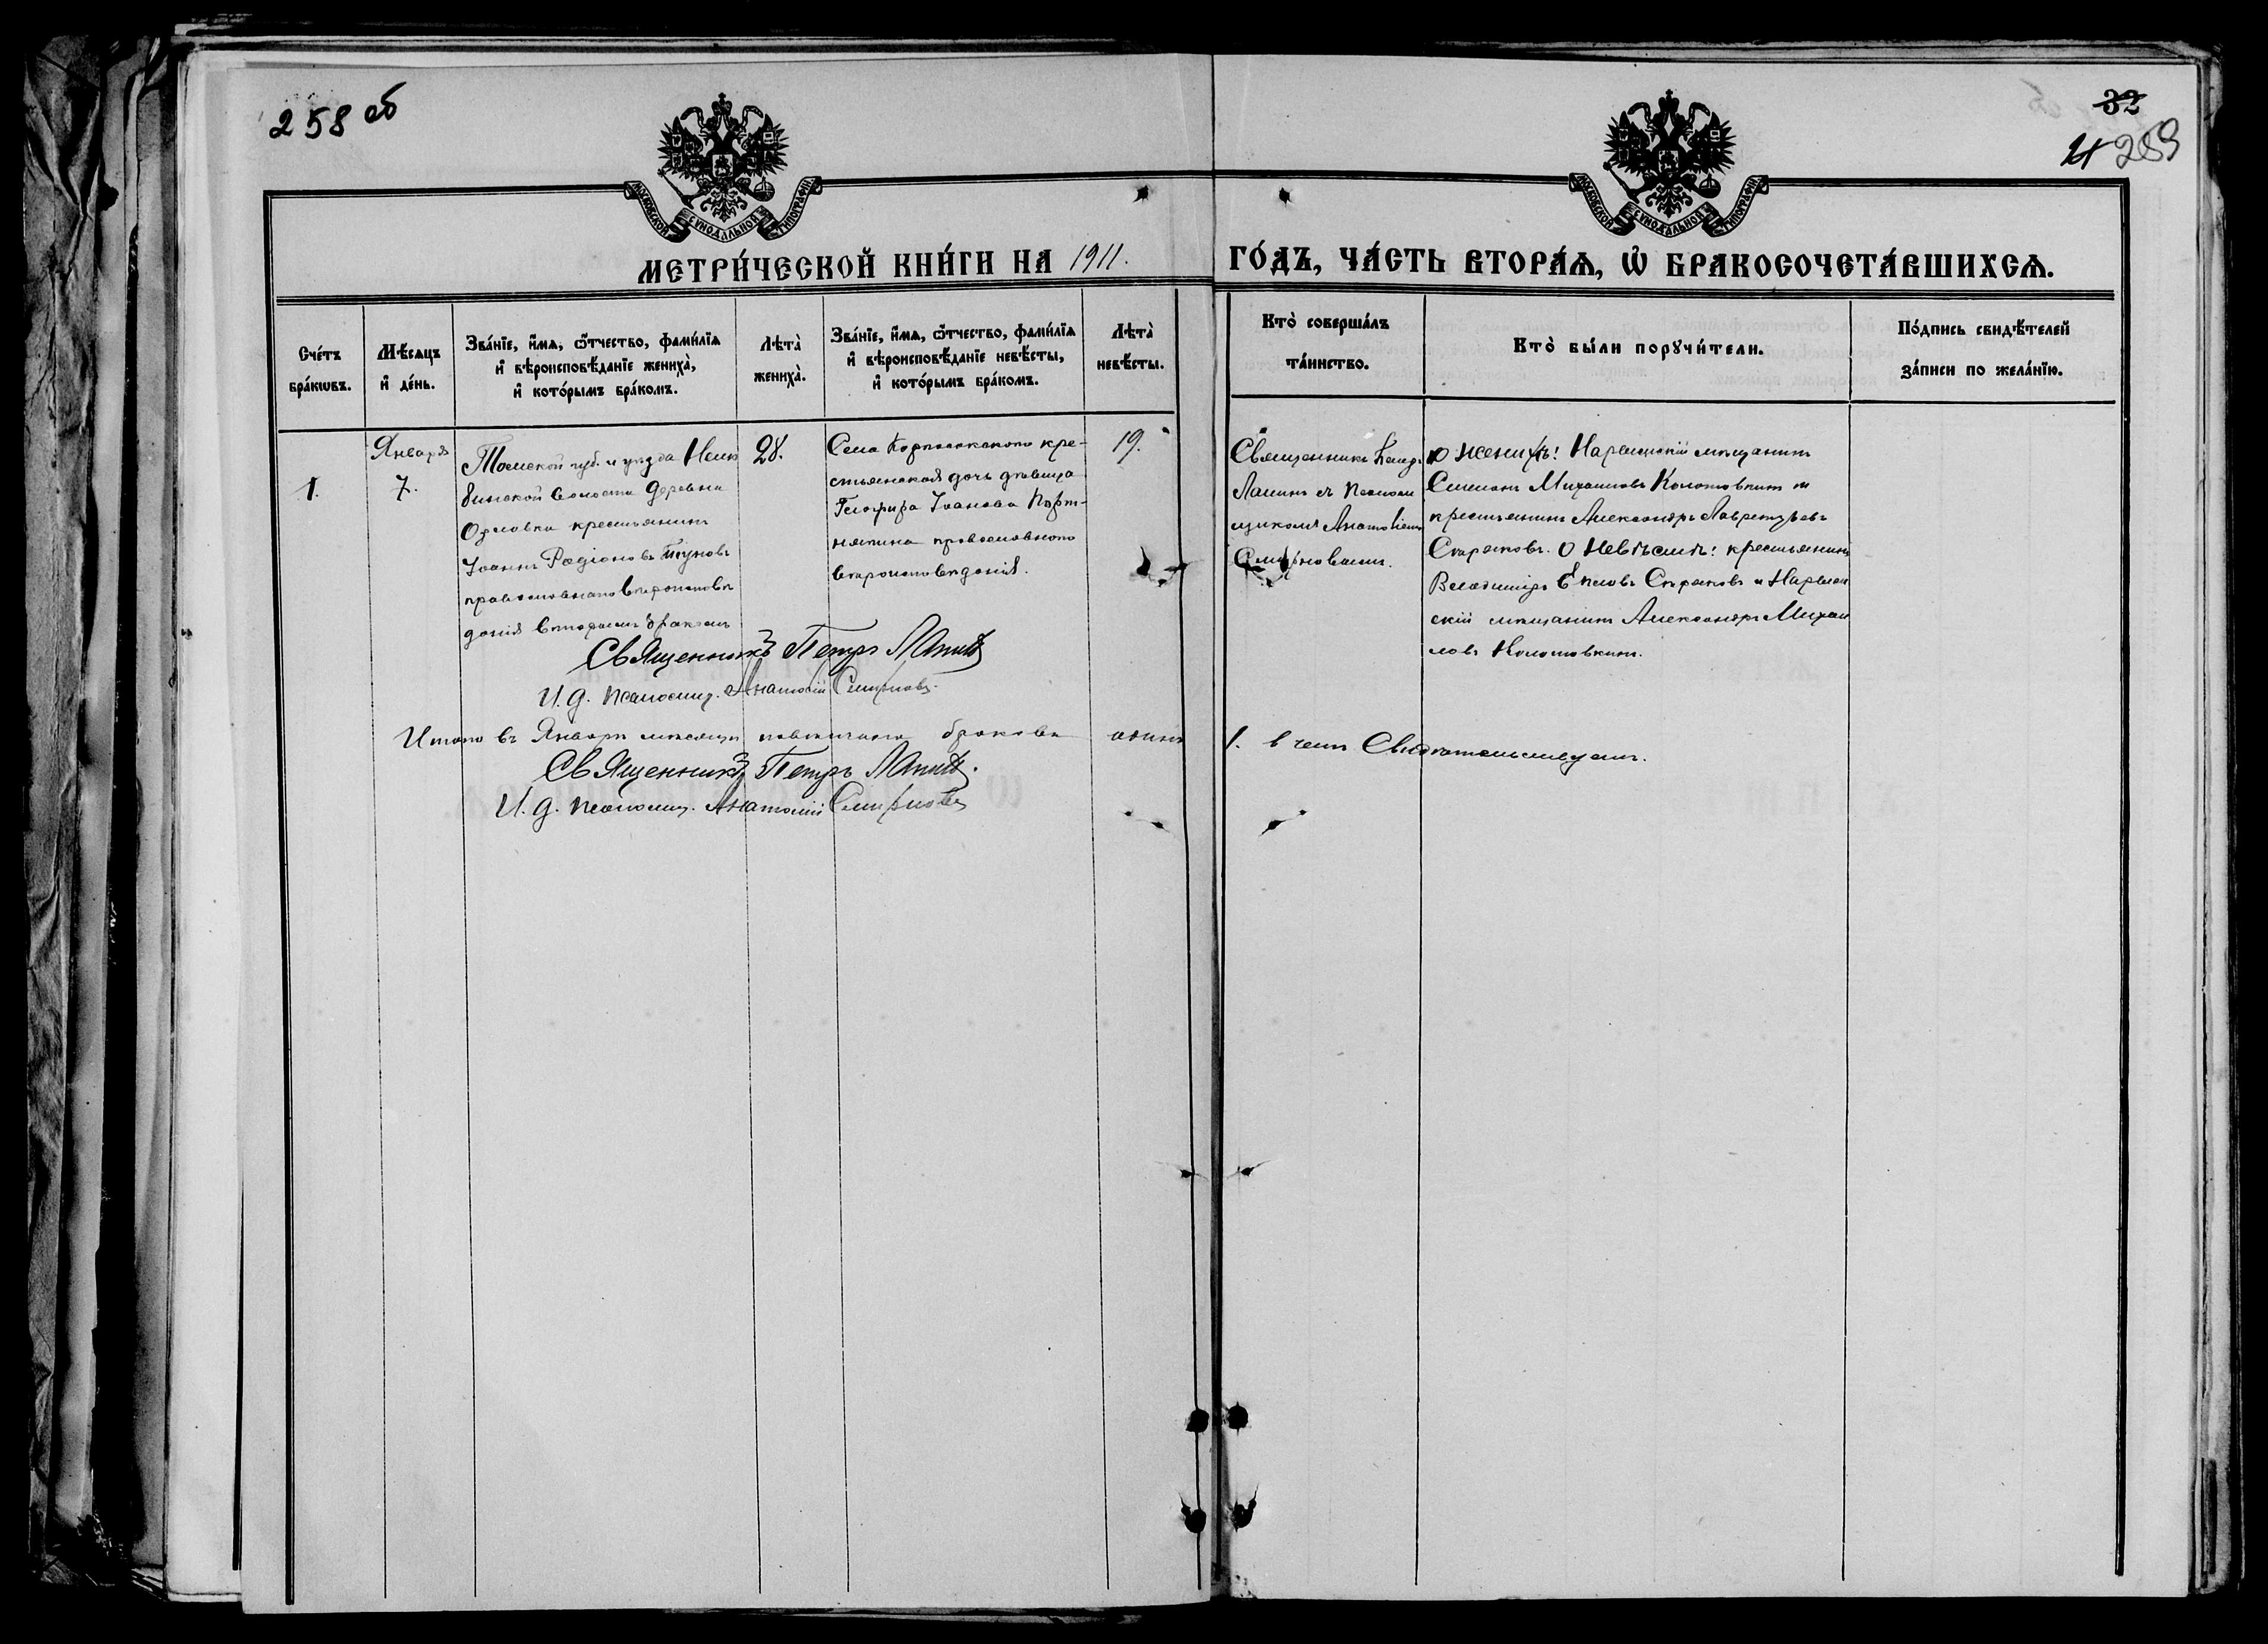 258 об
32
259
МОСКОВСКОЙ СѴНОДАЛЬНОЙ ТИПОГРАФІИ
МОСКОВСКОЙ СѴНОДАЛЬНОЙ ТИПОГРАФІИ
МЕТРИ́ЧЕСКОЙ КНИ́ГИ НА 1911.
ГО́ДЪ, ЧА́СТЬ ВТОРА́Ѧ, Ѡ҆ БРАКОСОЧЕТА́ВШИХСѦ.
Сче́тъ
бра́кѡвъ.
Мѣ́сѧцъ
и҆ де́нь.
Зва́нїе, и҆́мѧ, ѻ҆́тчество, фами́лїѧ
и҆ вѣроисповѣ́данїе жениха̀,
и҆ кото́рымъ бра́комъ.
Лѣта̀
жениха̀.
Зва́нїе, и҆́мѧ, ѻ҆́тчество, фами́лїѧ
и҆ вѣроисповѣ́данїе невѣ́сты,
и҆ кото́рымъ бра́комъ.
Лѣта̀
невѣ́сты.
Кто̀ соверша́лъ
та́инство.
Кто̀ бы́ли порꙋчи́тели.
По́дпись свидѣ́телей
за́писи по жела́нїю.
1.
Января
7.
Томской губ. и уѣзда Нелю
бинской волости деревни
Орловки крестьянинъ
Іоаннъ Родіоновъ
православнаго вѣроисповѣ
данія вторымъ бракомъ
28.
Села кре-
стьянская дочь дѣвица
Іоанова
православного
вѣроисповѣданія.
19.
Священникъ Петръ
Лапинъ съ Псалом
щикомъ Анатоліемъ
Смирновымъ.
О женихѣ: Нарымскій мѣщанинъ
Симеонъ Михаиловъ Колотовкинъ и
крестьянинъ Александръ Лаврентьевъ
О невѣстѣ: крестьянинъ
Владиміръ и Нарым
скій мѣщанинъ Александръ Михаи
ловъ Колотовкинъ.
Священникъ Петръ Лапинъ
И. д. псаломщ. Анатолій Смирновъ.
Итого въ Январѣ мѣсяцѣ повѣнчано браковъ одинъ 1. в чемъ Свидѣтельствуемъ.
Священникъ Петръ Лапинъ.
И. д. псаломщ. Анатолій Смирновъ